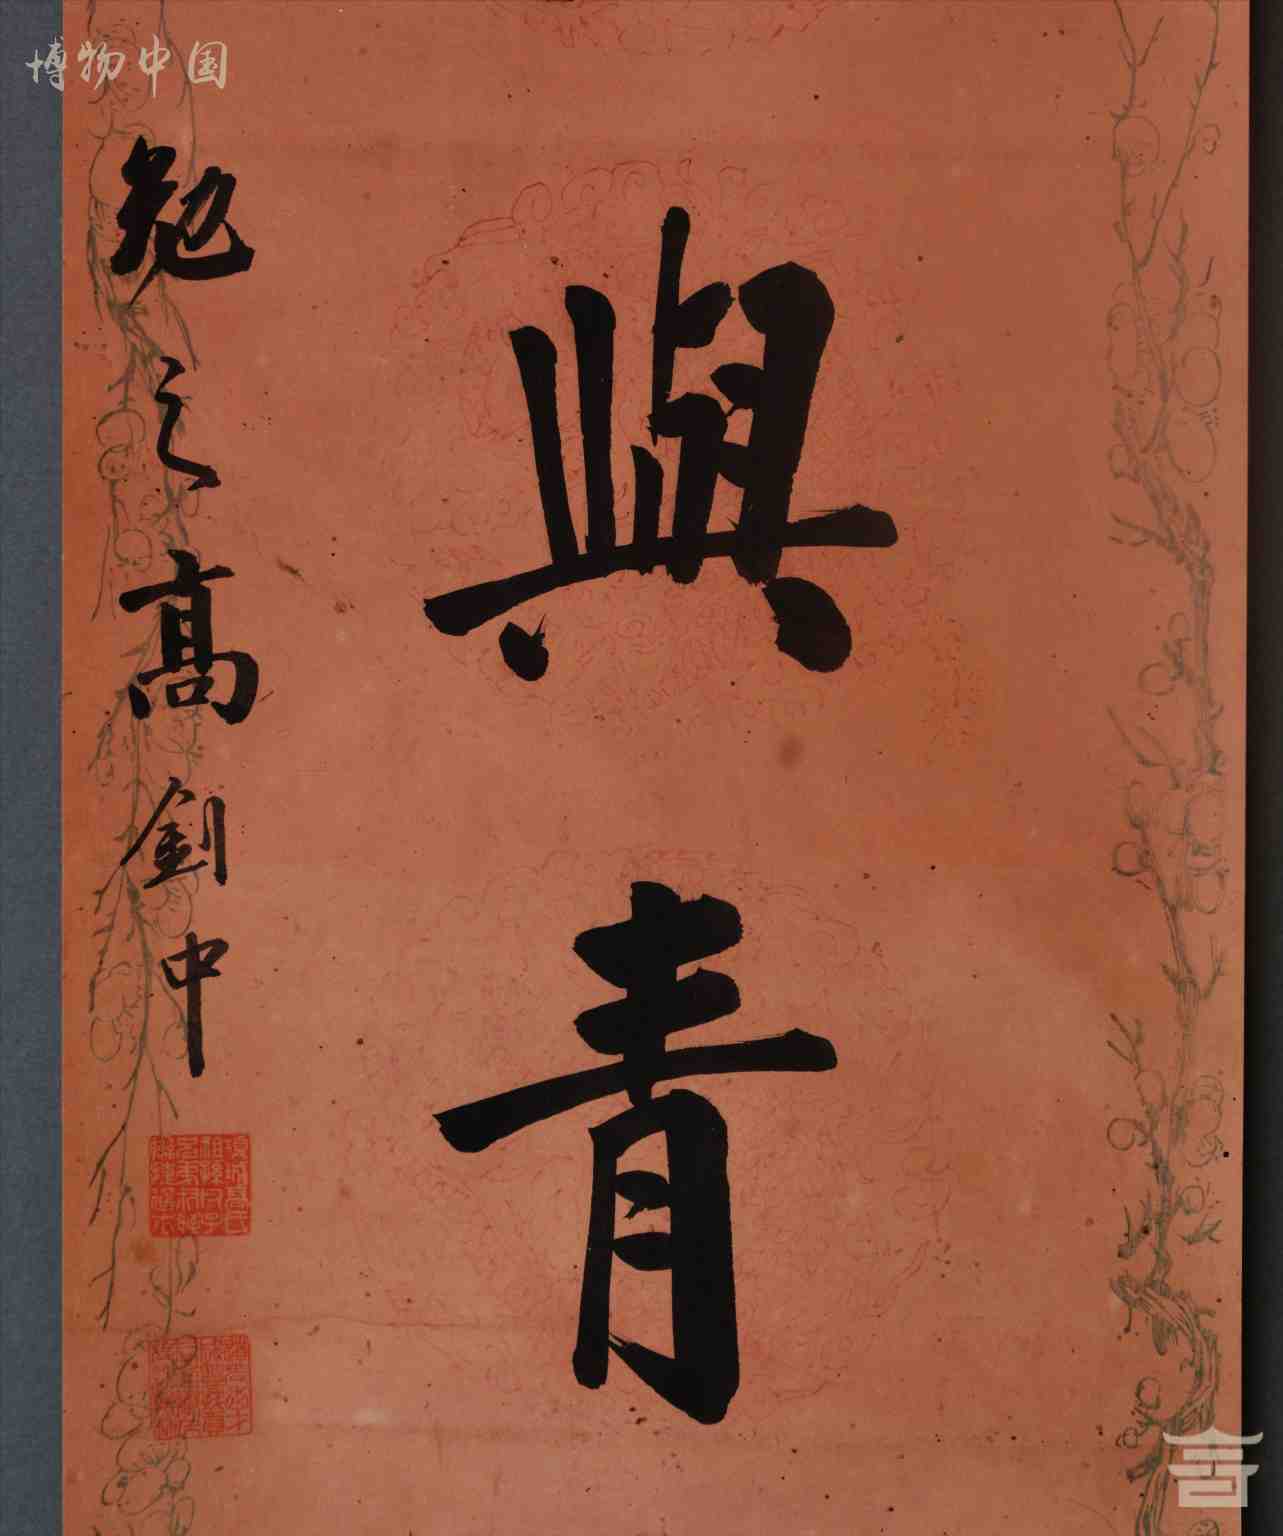 博物中国
與青
勉之高釗中